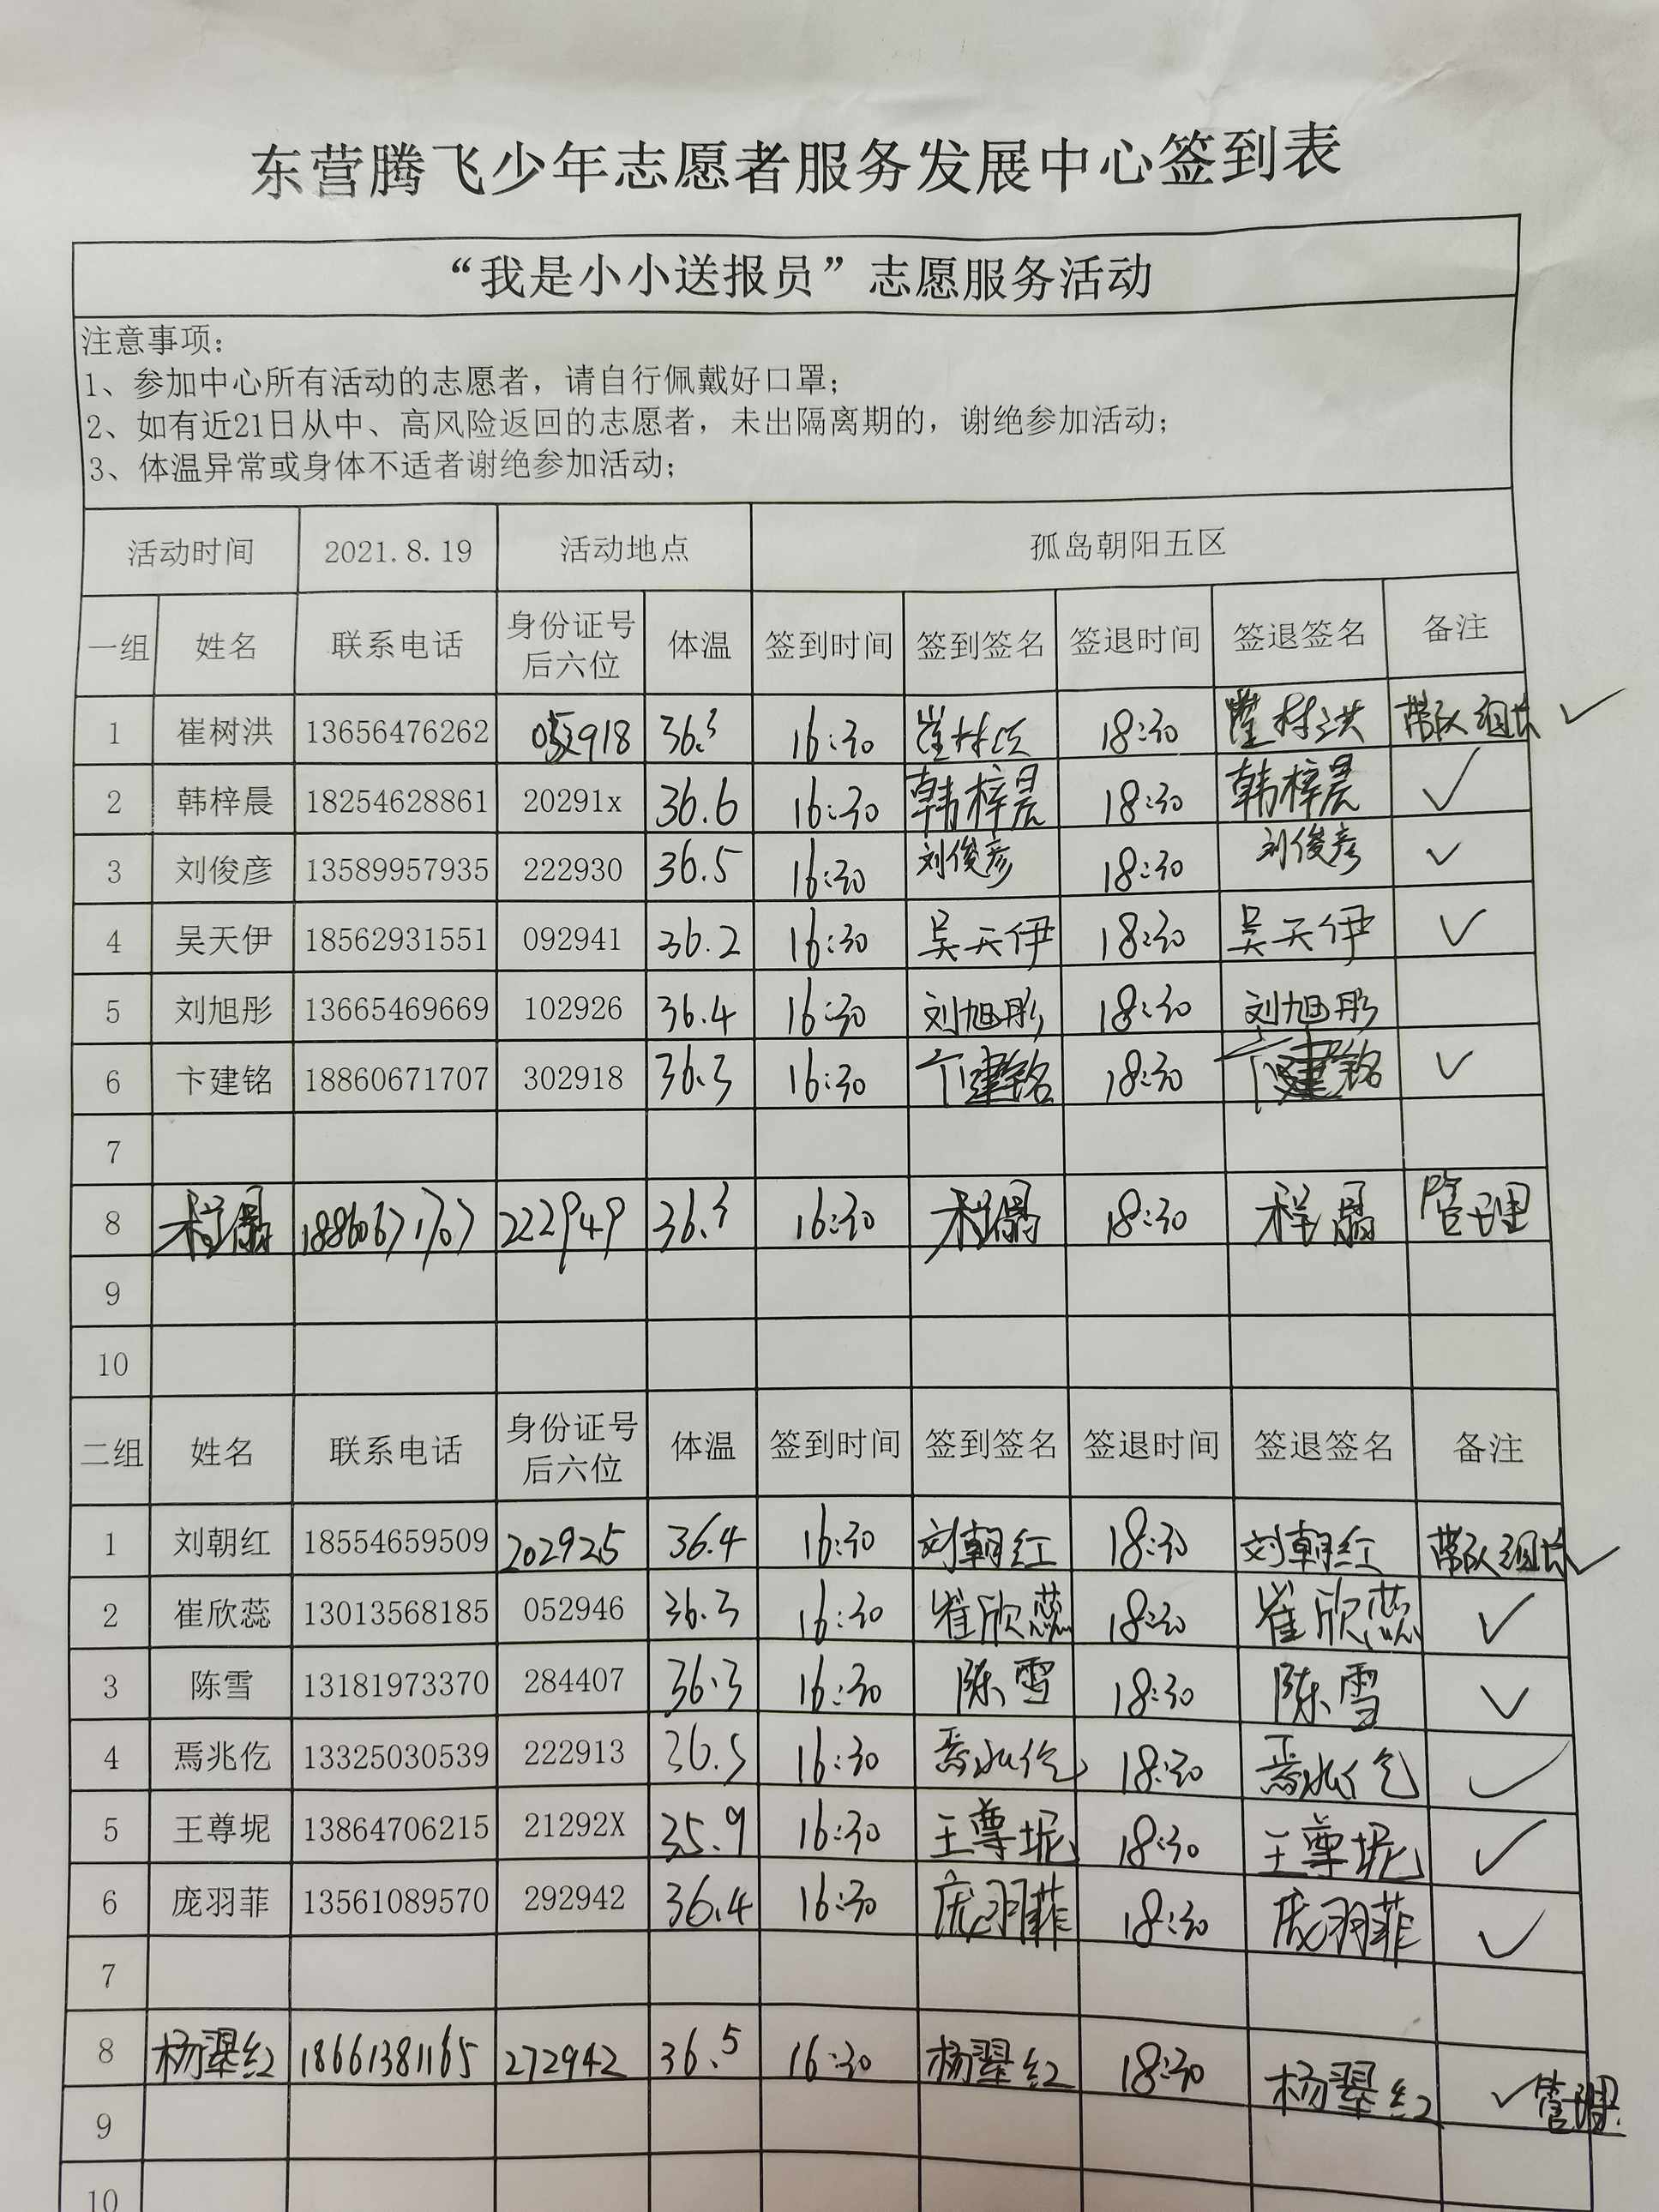 东营腾飞少年志愿者服务发展中心签到表
“我是小小送报员”志愿服务活动
注意事项：
1、参加中心所有活动的志愿者，请自行佩戴好口罩；
2、如有近21日从中、高风险返回的志愿者，未出隔离期的，谢绝参加活动；
3、体温异常或身体不适者谢绝参加活动；
活动时间 2021.8.19 活动地点 孤岛朝阳五区
一组 姓名 联系电话 身份证号后六位 体温 签到时间 签到签名 签退时间 签退签名 备注
1 崔树洪 13656476262 918 36.3 16:30 崔树洪 18:30 崔树洪 带队组长 ✓
2 韩梓晨 18254628861 20291x 36.6 16:30 韩梓晨 18:30 韩梓晨 ✓
3 刘俊彦 13589957935 222930 36.5 16:30 刘俊彦 18:30 刘俊彦 ✓
4 吴天伊 18562931551 092941 36.2 16:30 吴天伊 18:30 吴天伊 ✓
5 刘旭彤 13665469669 102926 36.4 16:30 刘旭彤 18:30 刘旭彤
6 卞建铭 18860671707 302918 36.3 16:30 卞建铭 18:30 卞建铭 ✓
7
8 18860671707 222949 36.3 16:30 18:30 管理
9
10
二组 姓名 联系电话 身份证号后六位 体温 签到时间 签到签名 签退时间 签退签名 备注
1 刘朝红 18554659509 202925 36.4 16:30 刘朝红 18:30 刘朝红 带队组长 ✓
2 崔欣蕊 13013568185 052946 36.3 16:30 崔欣蕊 18:30 崔欣蕊 ✓
3 陈雪 13181973370 284407 36.3 16:30 陈雪 18:30 陈雪 ✓
4 焉兆仡 13325030539 222913 36.5 16:30 焉兆仡 18:30 焉兆仡 ✓
5 王尊坭 13864706215 21292X 35.9 16:30 王尊坭 18:30 王尊坭 ✓
6 庞羽菲 13561089570 292942 36.4 16:30 庞羽菲 18:30 庞羽菲 ✓
7
8 杨翠红 18661381165 272942 36.5 16:30 杨翠红 18:30 杨翠红 ✓管理
9
10